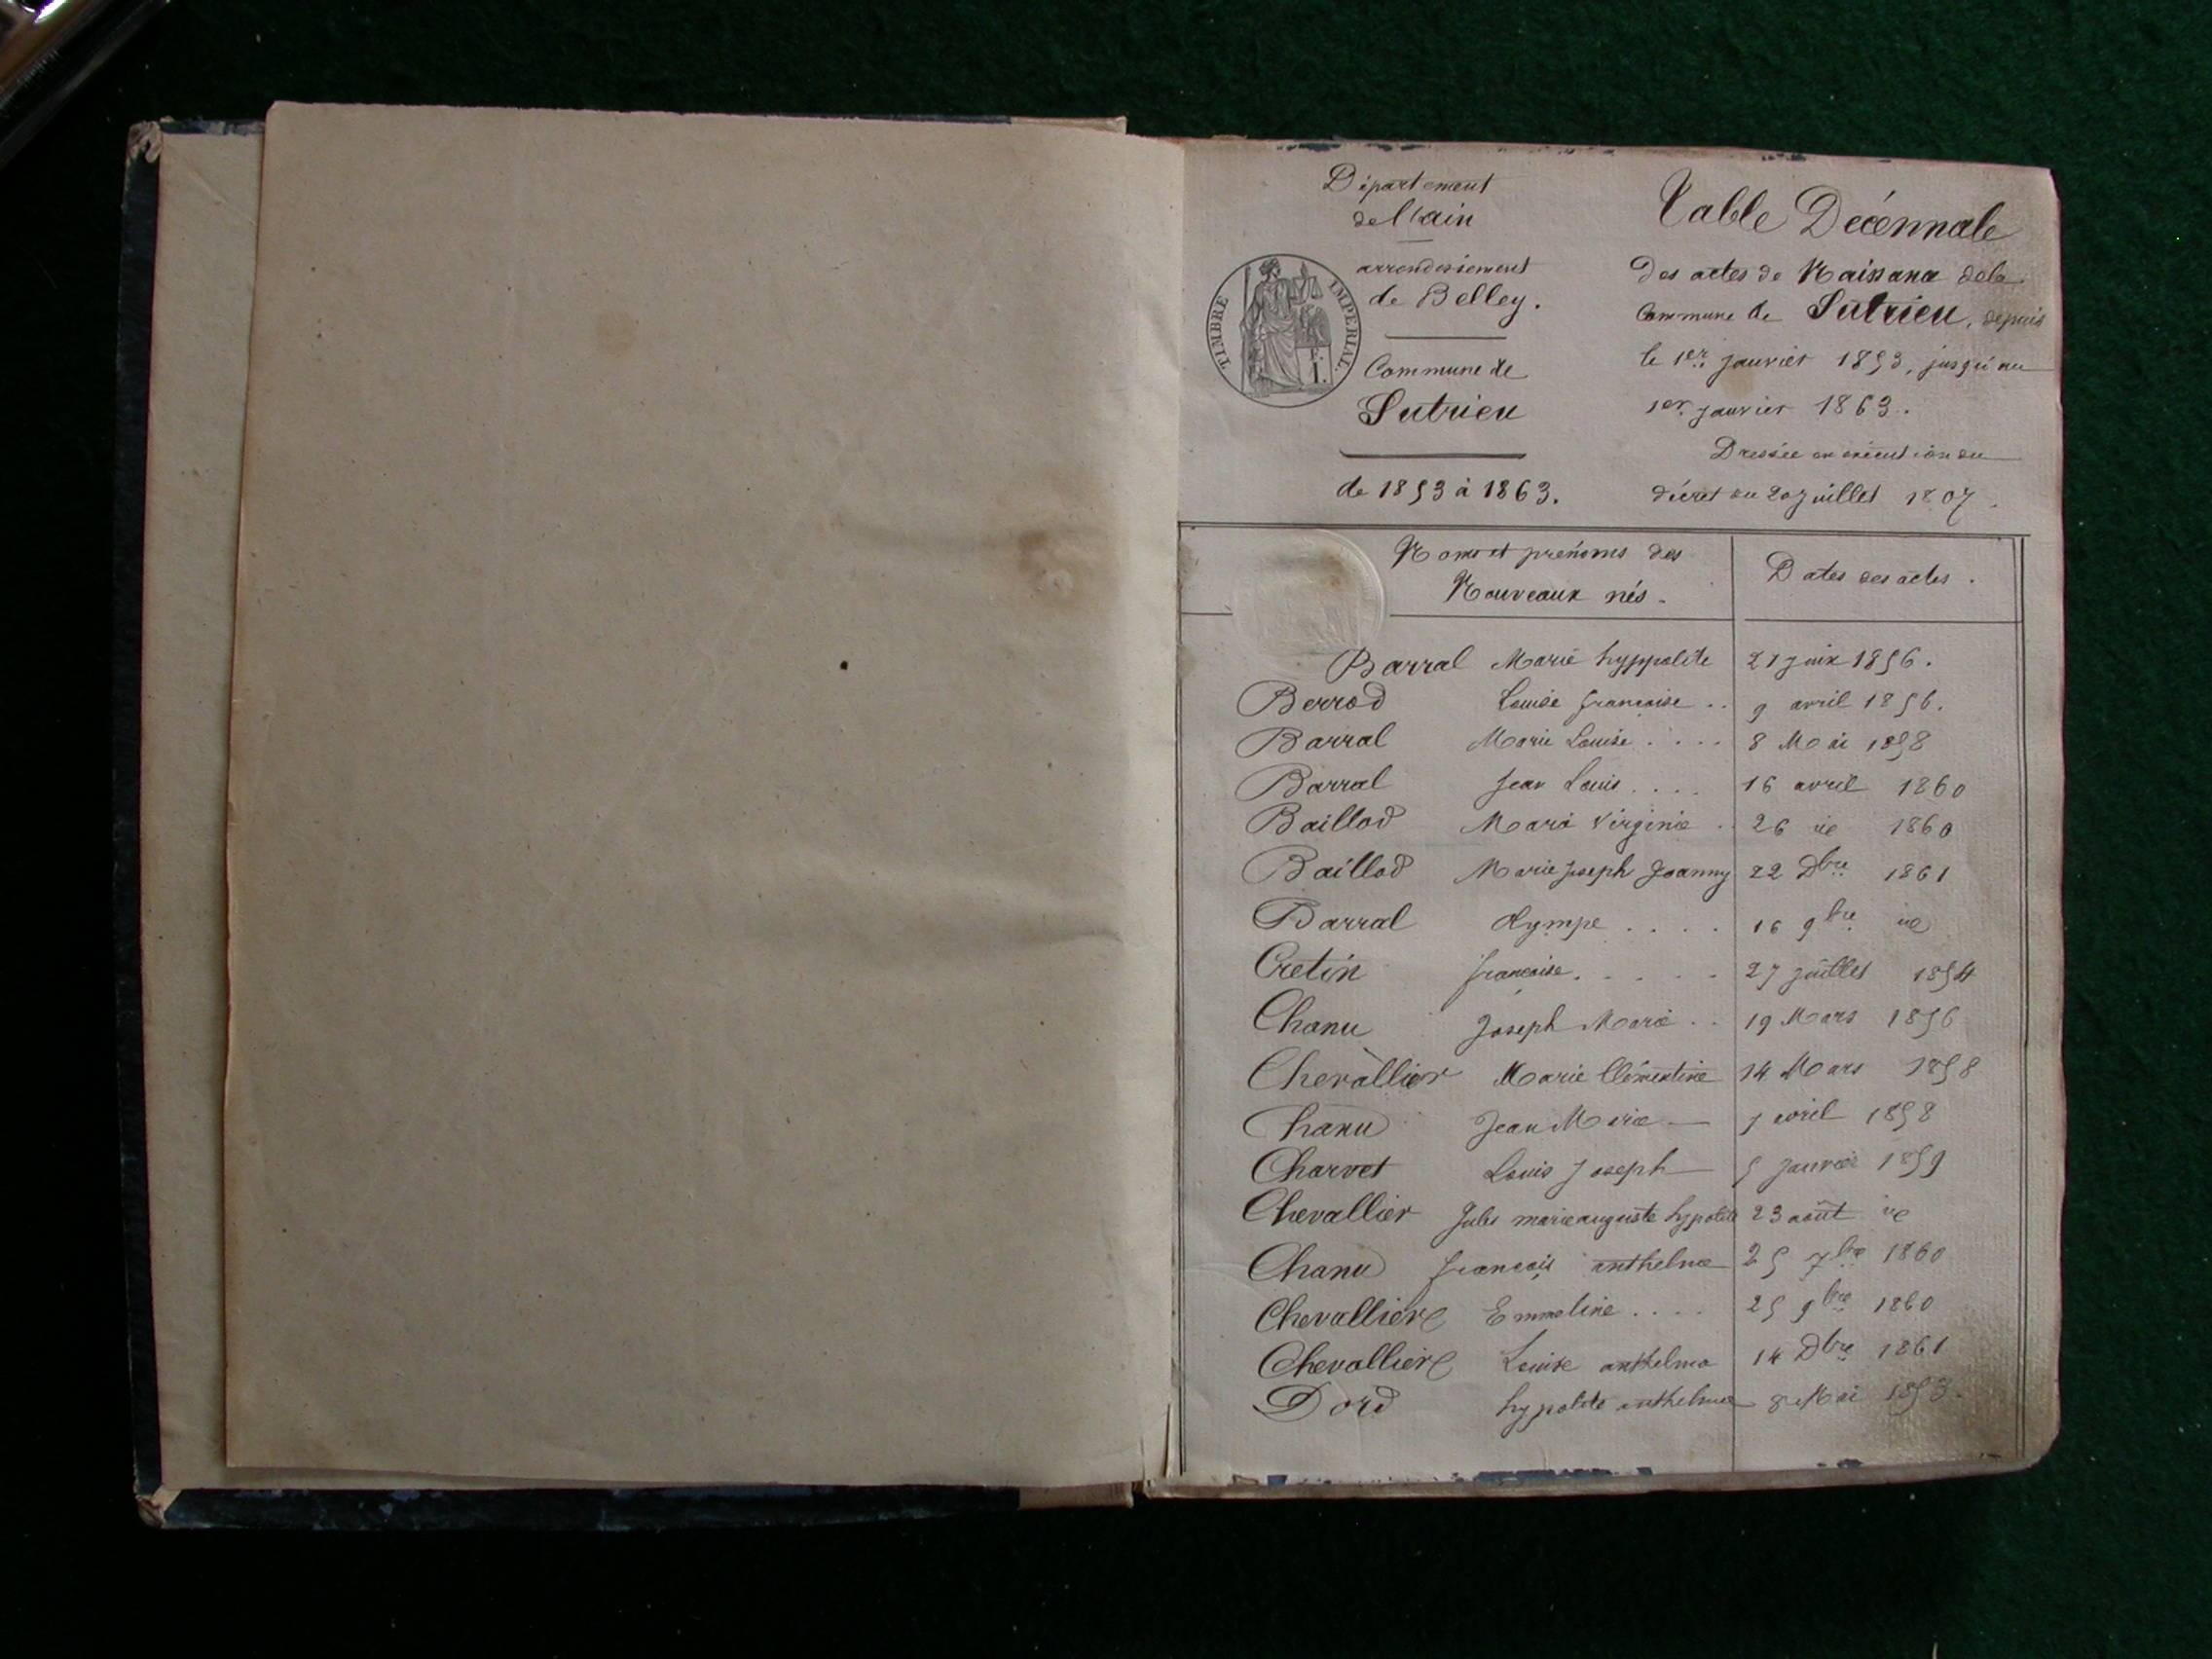 Département
de l'ain
arrondissement
de Belley.
Commune de
Sutrieu
de 1853 à 1863.
TIMBRE IMPERIAL.
Table Décennale
Des actes de Naissance dela
Commune de Sutrieu, depuis
le 1er janvier 1853, jusqu'au
1er janvier 1863.
Dressée en exécution du
décret du 20 juillet 1807.
Noms et prénoms des
Nouveaux nés.
Dates des actes.
Barral Marie hyppolite 21 juin 1856.
Berrod Louise françoise .. 9 avril 1856.
Barral Marie Louise .... 8 Mai 1858
Barral Jean Louis .... 16 avril 1860
Baillod Marie Virginie . 26 id 1860
Baillod Marie Joseph Joanny 22 Dbre 1861
Barral Olympe .... 16 9bre id
Cretin françoise ..... 27 juillet 1854
Chanu Joseph Marie .. 19 Mars 1856
Chevallier Marie Clémentine 14 Mars 1858
Chanu Jean Marie — avril 1858
Charvet Louis Joseph — 5 janvier 1859
Chevallier Jules marie auguste hypolite 23 août id
Chanu françois anthelme 25 7bre 1860
Chevallier Emmeline .... 25 9bre 1860
Chevallier Louise anthelme 14 Dbre 1861
Dord hypolite anthelme 8 Mai 1853.